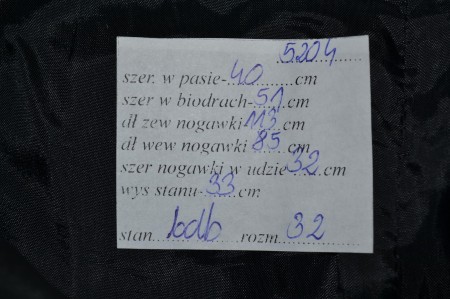 5204
szer. w pasie-40........cm
szer w biodrach-51.cm
dł zew nogawki 113.cm
dł wew nogawki 85.cm
szer nogawki w udzie 32.cm
wys stanu-33.cm
stan bdb rozm. 32